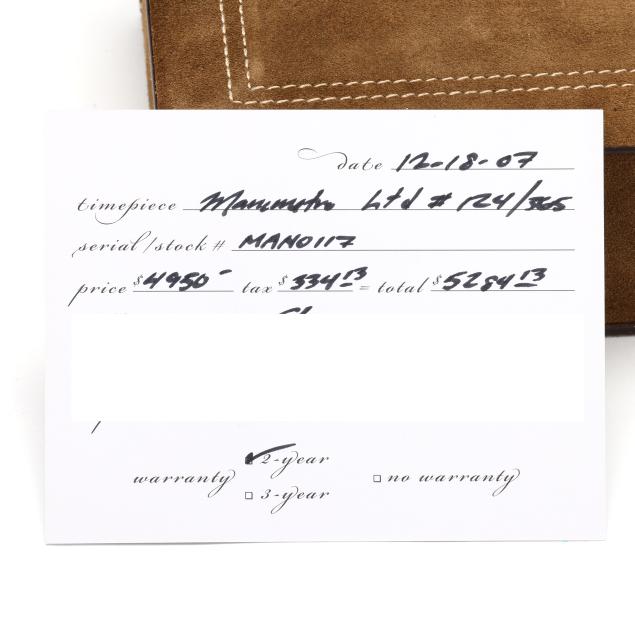 date 12-18-07
timepiece Manometro Ltd # 124/365
serial/stock # MAN0117
price $4950- tax $334 13 = total $5284 13
2-year
warranty □ no warranty
□ 3-year